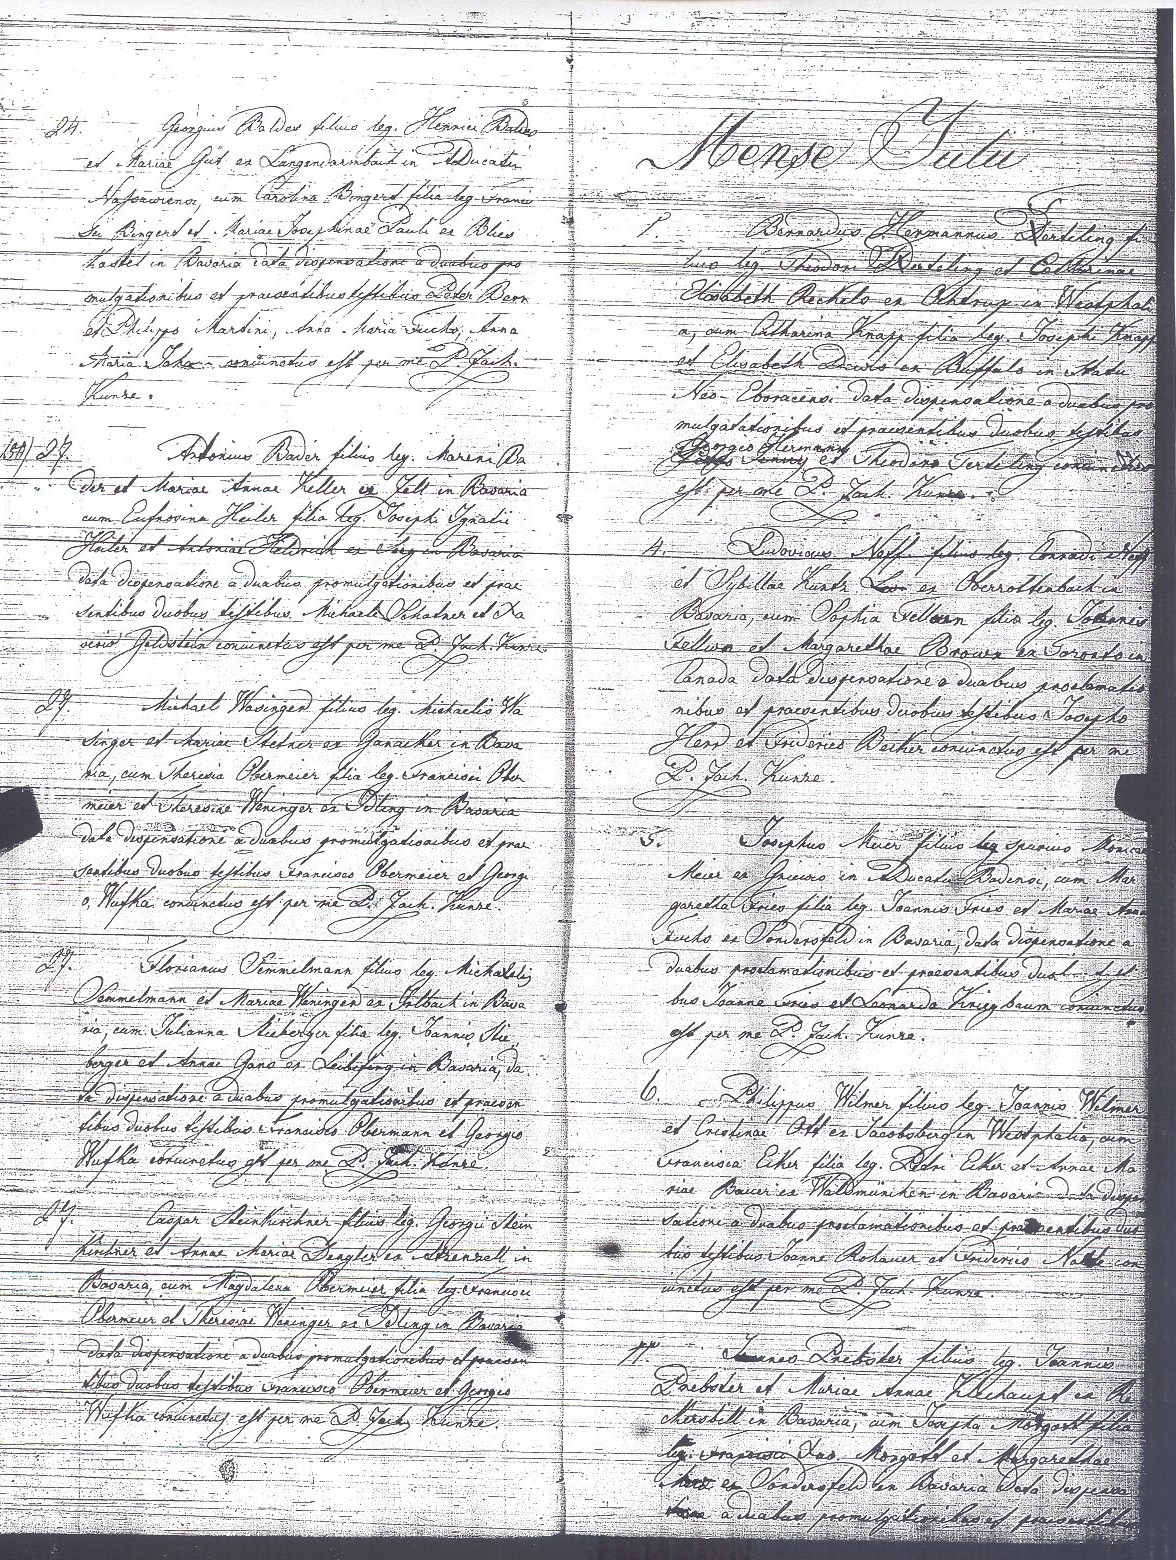 24. Georgius Baldes filius leg. Henrici Baldes
et Mariae Güt ex Langendarmbach in Ducatu
Nassawiensi, cum Carolina Bingert filia leg. Francis
sci Bingert et Mariae Josephinae Pauli ex Blies
kastel in Bavaria data dispensatione a duabus pro
mulgationibus et praesentibus testibus Peter Bern
et Philippo Martini, Anna Maria Fuchs, Anna
Maria coniunctus est per me P. Zach.
Kunze.
27. Antonius Bader filius leg. Mareni Ba
der et Mariae Annae Keller ex Zell in Bavaria
cum Eufrosina Heiler filia leg. Josephi Ignatii
Heiler et Antoniae ex in Bavaria
data dispensatione a duabus promulgationibus et prae
sentibus duobus testibus Michaele Schatner et Xa
verio Goldstein coniunctus est per me P. Zach. Kunze
27. Michael Wasinger filius leg. Michaelis Wa
singer et Mariae Stetner ex Ganacker in Bava
ria, cum Theresia Obermeier filia leg. Francisci Ober
meier et Theresiae Weninger ex Idling in Bavaria
data dispensatione a duabus promulgationibus et prae
sentibus duobus testibus Francisco Obermeier et Georgi
o Wufka coniunctus est per me P. Zach. Kunze.
27. Florianus Semmelmann filius leg. Michaelis
Semmelmann et Mariae Weninger ex in Bava
ria, cum Julianna Stieberger filia leg. Joannis Stie
berger et Annae Gans ex Leibifing in Bavaria, da
ta dispensatione a duabus promulgationibus et praesen
tibus duobus testibus Francisco Obermann et Georgio
Wufka coniunctus est per me P. Zach. Kunze
27. Caspar Steinkirchner filius leg. Georgii Stein
kirchner et Annae Mariae Dengler ex in
Bavaria, cum Magdalena Obermeier filia leg. Francisci
Obermeier et Theresiae Weninger ex Idling in Bavaria
data dispensatione a duabus promulgationibus et praesen
tibus duobus testibus Francisco Obermeier et Georgio
Wufka coniunctus est per me P. Zach. Kunze.
Mense Julii
1. Bernardus Hermannus Terteling fi
lius leg. Theodori Terteling et Catharinae
Elisabeth Reckels ex Ochtrup in Westphali
a, cum Catharina Knapp filia leg. Josephi Knapp
et Elisabeth Drews ex Buffalo in Statu
Neo-Eboracensi data dispensatione a duabus pro
mulgatationibus et praesentibus duobus testibus
Georgio Hermann
et Theodoro Terteling coniunctus
est per me P. Zach. Kunze.
4. Ludovicus Neff filius leg. Conradi Neff
et Sybillae Kuntz ex Oberrottenbach in
Bavaria, cum Sophia Fellwn filia leg. Joannis
Fellwn et Margarethae Brown ex Toronto in
Canada data dispensatione a duabus proclamatio
nibus et praesentibus duobus testibus Josepho
Herd et Friderico Becker coniunctus est per me
P. Zach. Kunze.
5. Josephus Meier filius leg spurius Monicae
Meier ex in Ducatu Badensi, cum Mar
garetha Fries filia leg. Joannis Fries et Mariae Anna
Fuchs ex Sondersfeld in Bavaria, data dispensatione a
duabus proclamationibus et praesentibus duo test
bus Joanne Fries et Leonardo Kriegbaum coniunctus
est per me P. Zach. Kunze.
6. Philippus Wilmer filius leg. Joannis Wilmer
et Cristinae Ott ex Jacobsberg in Westphalia, cum
Francisca Ecker filia leg. Petri Ecker et Annae Ma
riae Bauer ex Waldmünchen in Bavaria data dispen
satione a duabus proclamationibus et praesentibus duo
bus testibus Joanne Rohauer et Friderico con
iunctus est per me P. Zach. Kunze.
11. Joannes Prebster filius leg. Joannis
Prebster et Mariae Annae ex Re
in Bavaria, cum Josepha Morgott filia
leg. Francisci Xav. Morgott et Margarethae
ex Sondersfeld in Bavaria data dispensa
tione a duabus promulgationibus et praesentibus